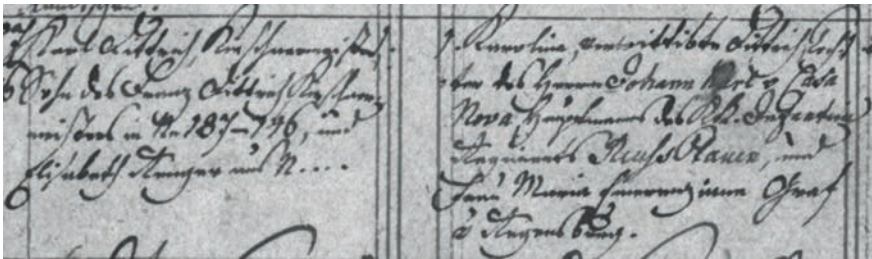 Karl Dittrich, Kirschnermeister,
Sohn des Franz Dittrich Kirschner-
meisters in N. 187-746, und
Elisabeth aus N....
Karolina, verwittibte Dittrich, Toch-
ter des Herrn Johann Karl v Casa
Nova, Hauptmanns des K.K. Infanterie
Regiments Reuss Plauen, und
Frau Maria Emerenziana Graf
v Regensburg.